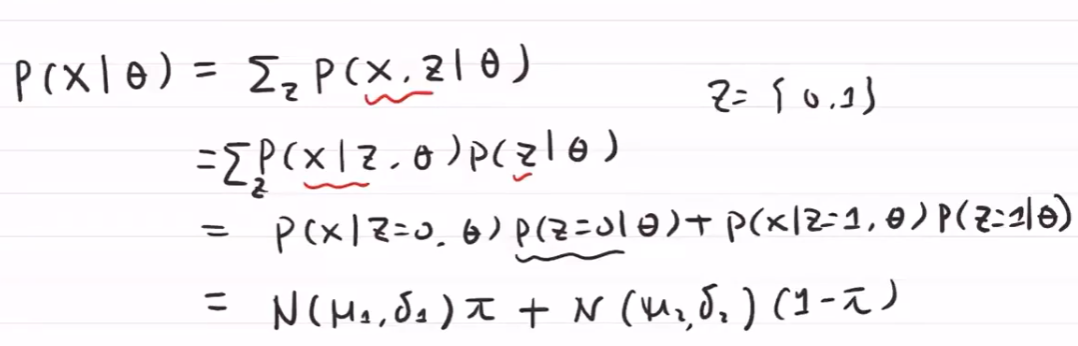 P(x|θ) = Σ_z P(x, z|θ)    z = {0.1}
= Σ_z P(x|z, θ) P(z|θ)
= P(x|z=0, θ) P(z=0|θ) + P(x|z=1, θ) P(z=1|θ)
= N(μ₁, δ₁) π + N(μ₂, δ₂) (1-π)